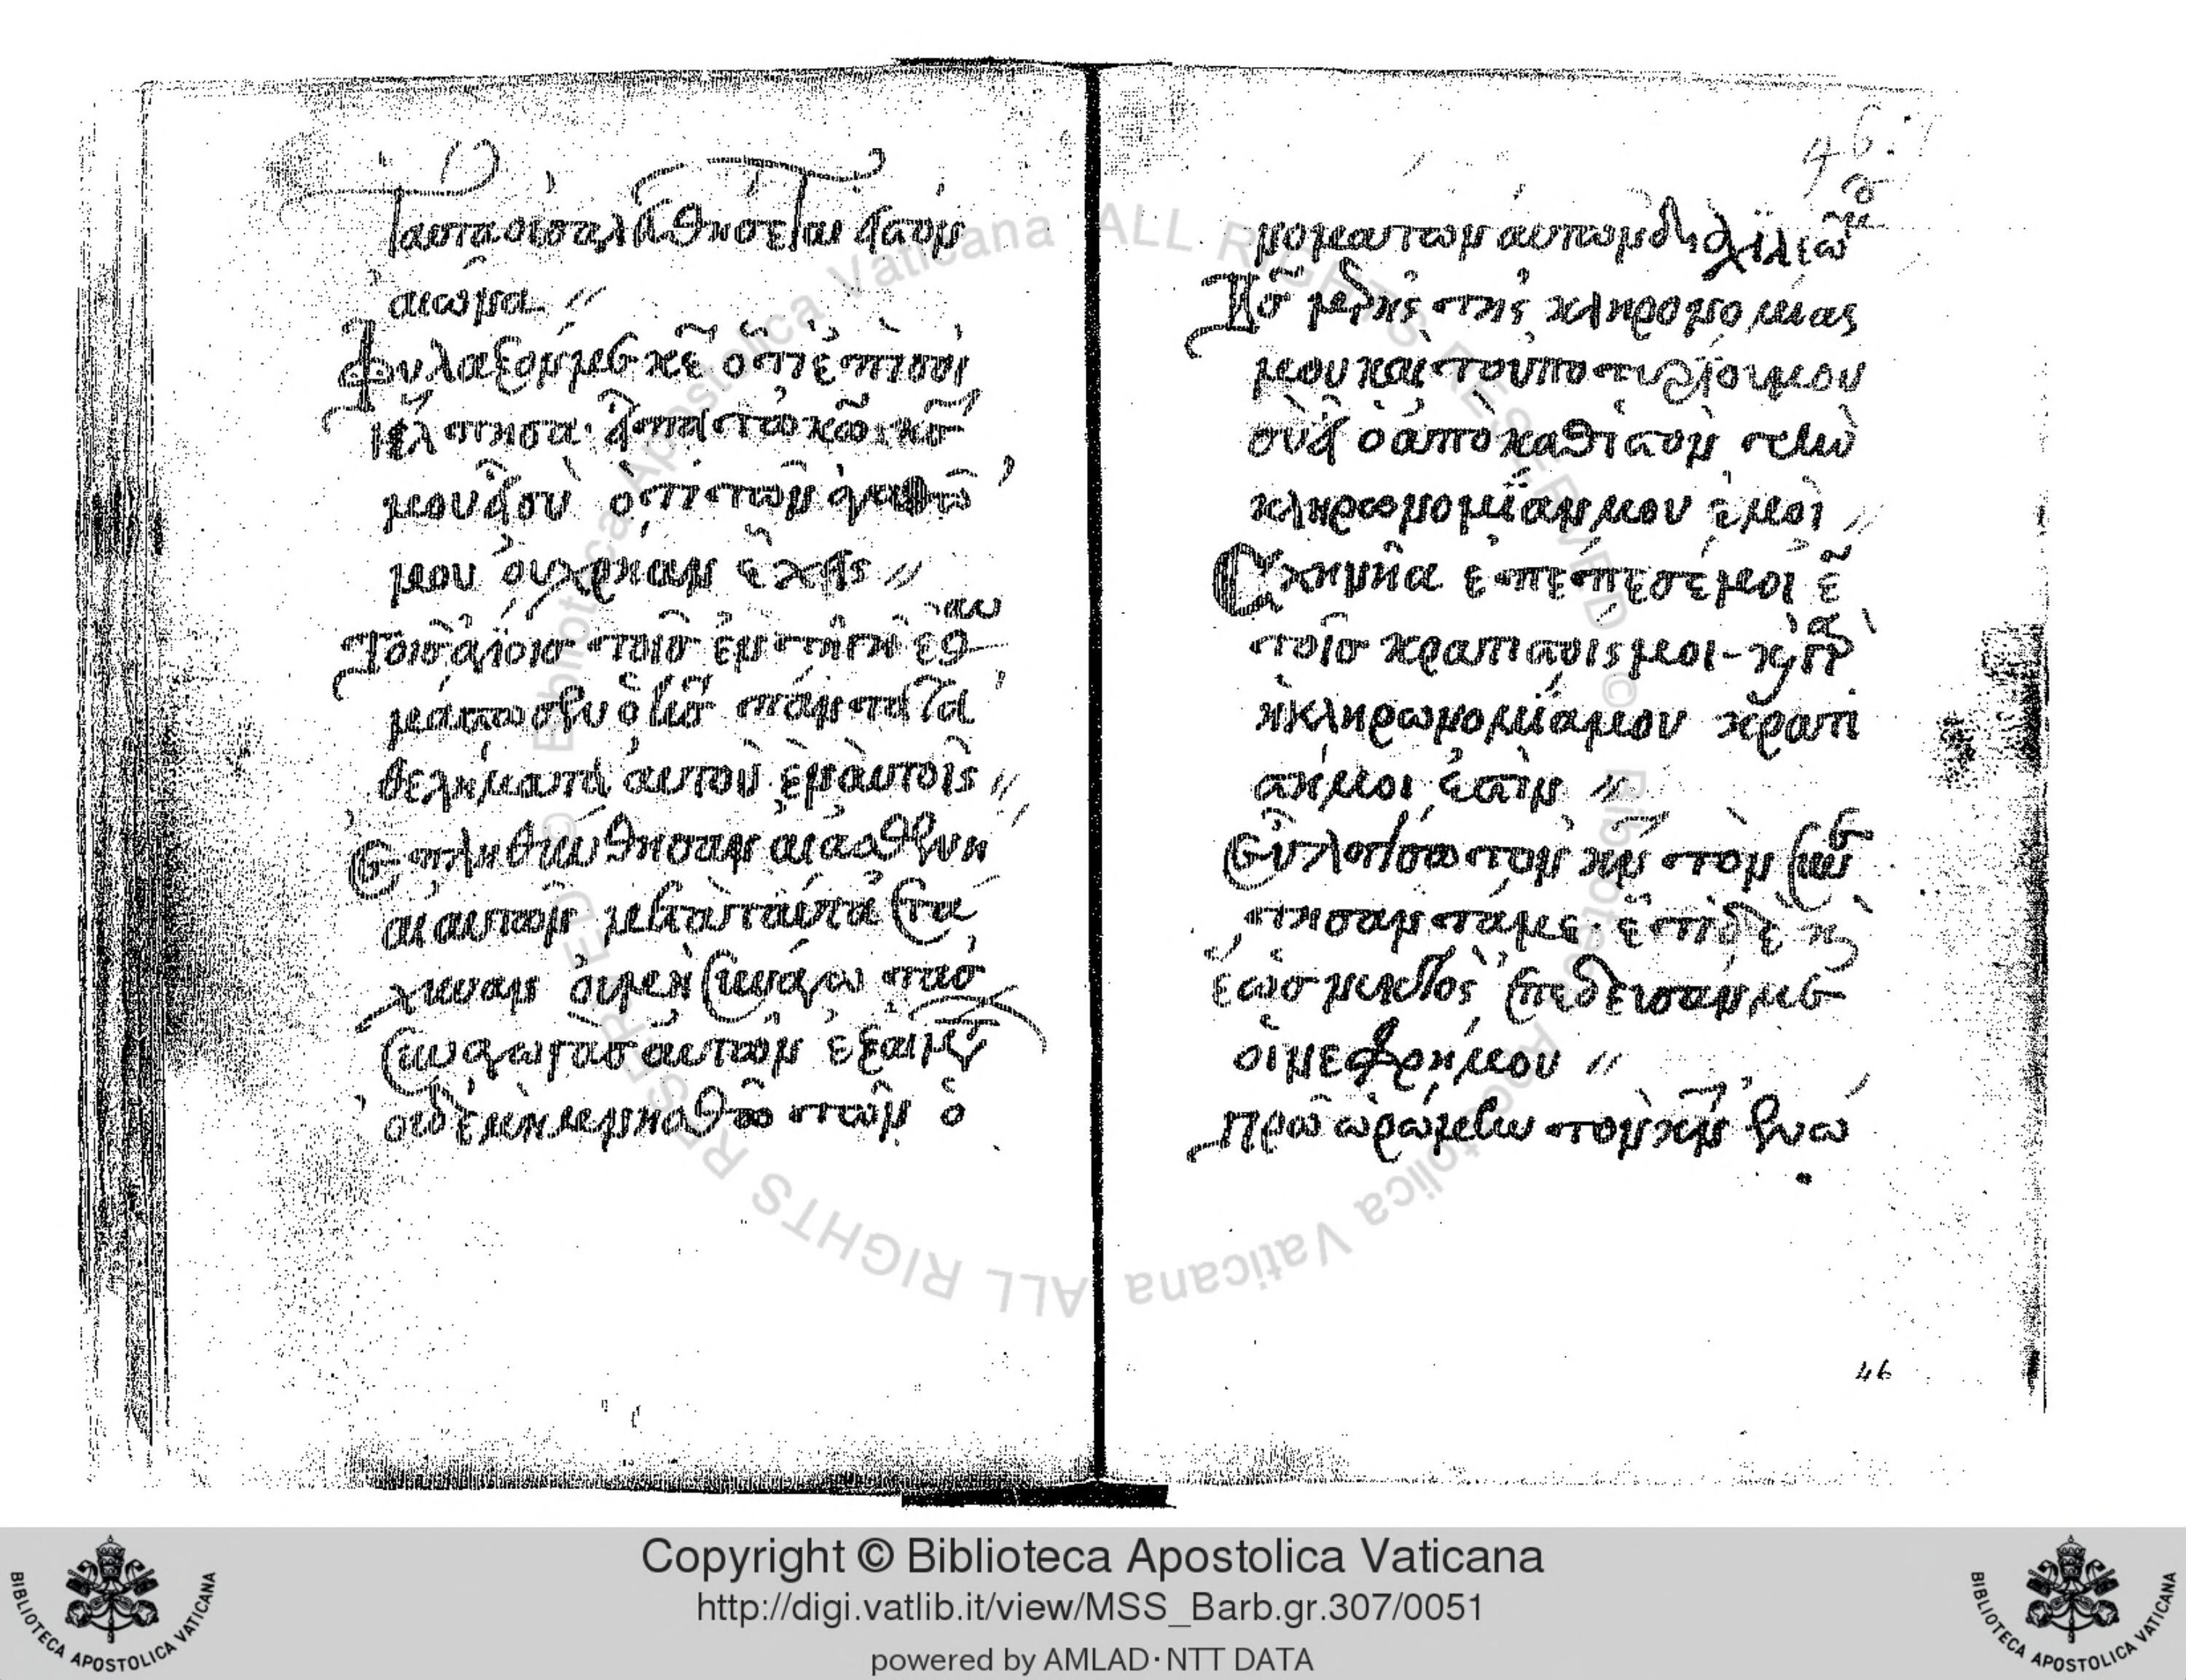 ταῦτα οὐ σαλευθήσεται εἰς τὸν
αἰῶνα //
Φύλαξόν με κε ὅτι ἐπὶ σοὶ
ἤλπισα· εἶπα τῶ κω κς
μου εἶ σὺ ὅτι τῶν ἀγαθῶ
μου οὐ χρείαν ἔχεις //
Τοῖς ἁγίοις τοῖς ἐν τῆ γῆ αυ
ἐθ
μάστωσεν ὁ κς πάντα τὰ
θελήματα αὐτοῦ ἐν αὐτοῖς //
Επληθύνθησαν αἱ ἀσθένει
αι αὐτῶν μετὰ ταῦτα ἐτά
χυναν οὐ μὴ συναγάγω τὰς
συναγωγὰς αὐτῶν ἐξ αἱμάτ
οὐδὲ μὴ μνησθῶ τῶν ὀ
46
νομάτων αὐτῶν διὰ χειλέων μ
Κς μερὶς τῆς κληρονομίας
μου καὶ τοῦ ποτηρίου μου
σὺ εἶ ὁ ἀποκαθιστῶν τὴν
κληρωνομίαν μου ἐμοὶ //
Σχοινία ἐπέπεσέ μοι ἐ
τοῖς κρατίστοις μοι κ γὰρ
ἡ κληρωνομία μου κρατί
στη μοι ἐστὶν //
Εὐλογήσω τὸν κν τὸν συνε
τήσαντά με· ἔτι δὲ κ
ἕως νυκτὸς ἐπέδευσάν με
οἱ νεφροί μου //
Προωρώμην τὸν κν ἐνώ
46
Copyright © Biblioteca Apostolica Vaticana
http://digi.vatlib.it/view/MSS_Barb.gr.307/0051
powered by AMLAD·NTT DATA
BIBLIOTECA APOSTOLICA VATICANA
BIBLIOTECA APOSTOLICA VATICANA